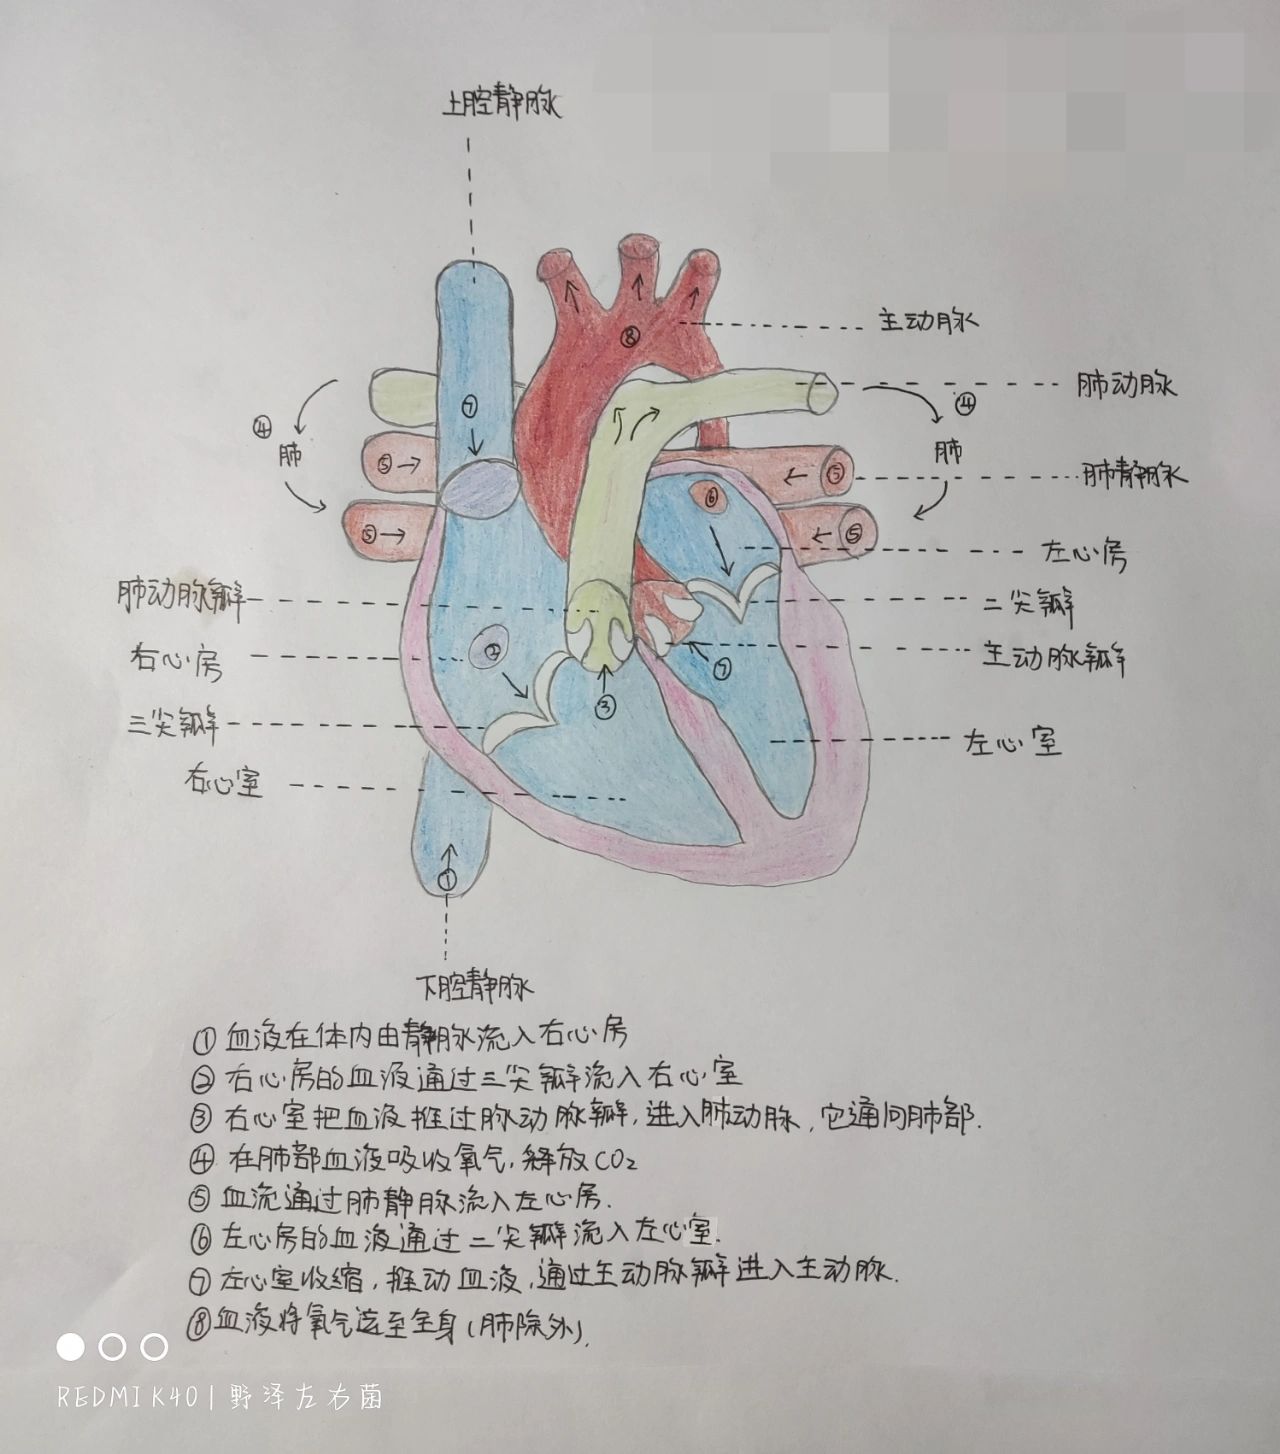 上腔静脉
主动脉
⑧
肺动脉
④
④
⑦
肺
肺
⑤
⑤
肺静脉
⑥
⑤
⑤
左心房
肺动脉瓣
二尖瓣
右心房
②
主动脉瓣
⑦
③
三尖瓣
左心室
右心室
①
下腔静脉
① 血液在体内由静脉流入右心房
② 右心房的血液通过三尖瓣流入右心室
③ 右心室把血液推过脉动脉瓣,进入肺动脉,它通向肺部.
④ 在肺部血液吸收氧气,释放CO₂
⑤ 血流通过肺静脉流入左心房.
⑥ 左心房的血液通过二尖瓣流入左心室.
⑦ 左心室收缩,推动血液,通过主动脉瓣进入主动脉.
⑧ 血液将氧气送至全身(肺除外).
REDMI K40 | 野泽左右菌